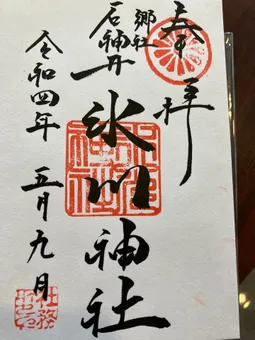 奉拝
郷社
石神井
氷川神社
令和四年 五月九日
社務